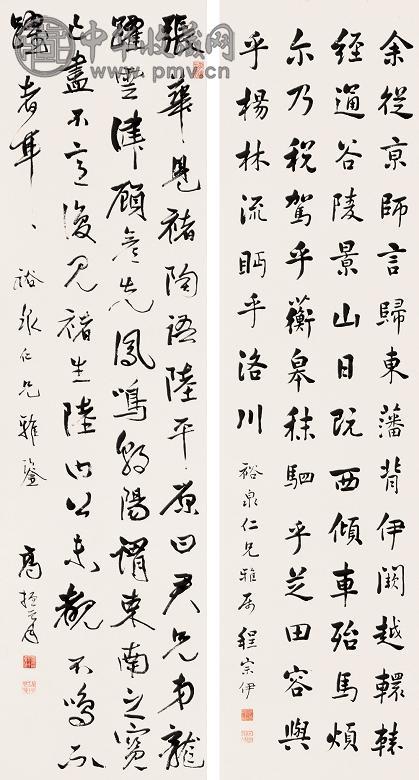 中华收藏网
www.pmv.cn
余從京師言歸東藩背伊闕越轘轅
經通谷陵景山日既西傾車殆馬煩
尒乃税駕乎蘅皋秣駟乎芝田容與
乎楊林流眄乎洛川
裕泉仁兄雅屬 程宗伊
張華見褚陶語陸平原曰君兄弟龍
躍雲津顧彦先鳳鳴朝陽謂東南之寶
已盡不意復見褚生陸曰公未覩不鳴不
躍者耳
裕泉仁兄雅鑒
高振霄